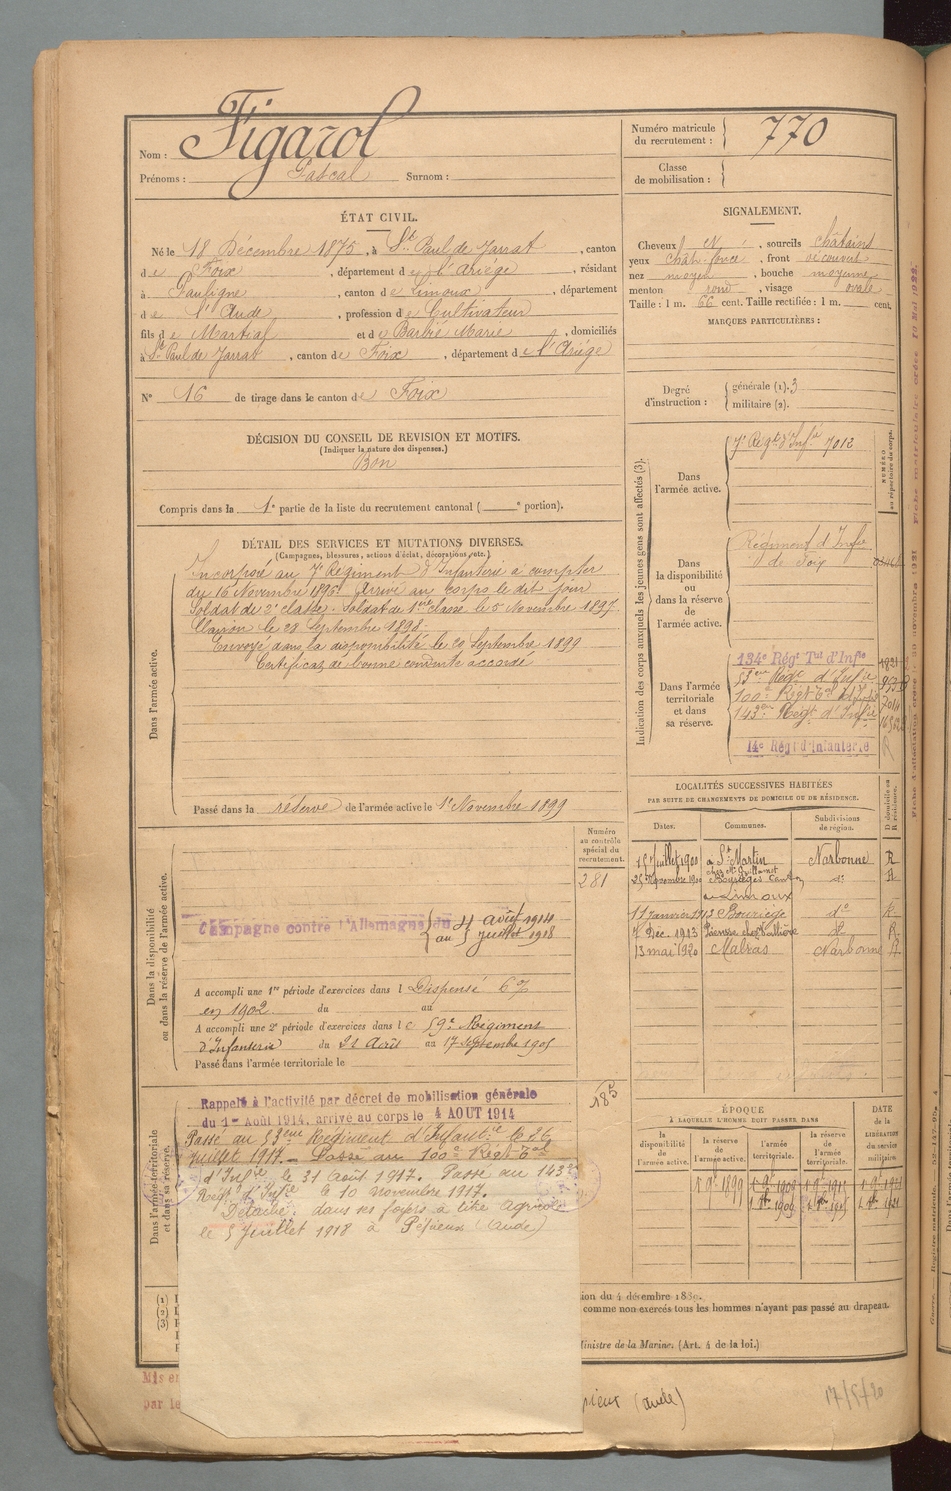 Nom : Figarol
Prénoms : Pascal Surnom :
Numéro matricule du recrutement : 770
Classe de mobilisation :
ÉTAT CIVIL.
Né le 18 Décembre 1875, à St Paul de Jarrat, canton
de Foix, département de l'Ariège, résidant
à Pauligne, canton de Limoux, département
de l'Aude, profession de Cultivateur
fils de Martial et de Barbié Marie, domiciliés
à St Paul de Jarrat, canton de Foix, département de l'Ariège
N° 16 de tirage dans le canton de Foix
SIGNALEMENT.
Cheveux N, sourcils châtains
yeux chât. foncé, front découvert
nez moyen, bouche moyenne
menton rond, visage ovale
Taille : 1 m. 66 cent. Taille rectifiée : 1 m. cent.
MARQUES PARTICULIÈRES :
Degré d'instruction : générale (1). 3
militaire (2).
DÉCISION DU CONSEIL DE REVISION ET MOTIFS.
(Indiquer la nature des dispenses.)
Bon
Compris dans la 1e partie de la liste du recrutement cantonal ( e portion).
DÉTAIL DES SERVICES ET MUTATIONS DIVERSES.
(Campagnes, blessures, actions d'éclat, décorations, etc.)
Dans l'armée active.
Incorporé au 7e Régiment d'Infanterie à compter
du 16 Novembre 1896. Arrivé au corps le dit jour
Soldat de 2e classe. Soldat de 1ere classe le 5 Novembre 1897.
Clairon le 28 Septembre 1898.
Envoyé dans la disponibilité le 20 Septembre 1899
Certificat de bonne conduite accordé
Passé dans la réserve de l'armée active le 1er Novembre 1899
Indication des corps auxquels les jeunes gens sont affectés (3).
NUMÉRO au répertoire du corps.
Dans l'armée active.
7e Régt d'Infie 7012
Dans la disponibilité ou dans la réserve de l'armée active.
Régiment d'Infie
de Foix
Dans l'armée territoriale et dans sa réserve.
134e Régt Tal d'Infie
53eme Régt d'Infie
100e Régt Tal d'Infie
143eme Régt d'Infie
14e Régt d'Infanterie
LOCALITÉS SUCCESSIVES HABITÉES
PAR SUITE DE CHANGEMENTS DE DOMICILE OU DE RÉSIDENCE.
Dates. Communes. Subdivisions de région. D domicile ou R résidence.
15 Juillet 1900 à St Martin Narbonne R
25 Novembre 1900 do R
à Limoux
11 Janvier 1913 Bouriège do R
Déc. 1913 R
13 mai 1920 Malras Narbonne R
Dans la disponibilité ou dans la réserve de l'armée active.
Numéro au contrôle spécial du recrutement.
281
Campagne contre l'Allemagne du Août 1914
au Juillet 1918
A accompli une 1re période d'exercices dans l Dispensé
en 1902 du au
A accompli une 2e période d'exercices dans le 59e Régiment
d'Infanterie du 21 Août au 17 Septembre 1905
Passé dans l'armée territoriale le
Dans l'armée territoriale et dans sa réserve.
Rappelé à l'activité par décret de mobilisation générale
du 1er Août 1914, arrivé au corps le 4 AOUT 1914
Passé au 53eme Régiment d'Infantie le 26
Juillet 1917. Passé au 100e Régt Tal
d'Infie le 31 Août 1917. Passé au 143e
Régt d'Infie le 10 novembre 1917.
Détaché dans ses foyers à titre agricole
le 5 Juillet 1918 à Pépieux (Aude)
185
ÉPOQUE
À LAQUELLE L'HOMME DOIT PASSER DANS
DATE de la LIBÉRATION du service militaire
la disponibilité de l'armée active. la réserve de l'armée active. l'armée territoriale. la réserve de l'armée territoriale.
(1)
(2)
(3)
ion du 4 décembre 1889.
comme non exercés tous les hommes n'ayant pas passé au drapeau.
Ministre de la Marine. (Art. 4 de la loi.)
Mis en
par le
pieux (aude)
17/5/20